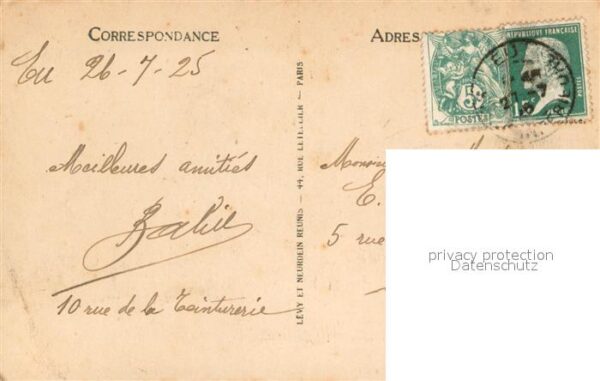 CORRESPONDANCE
Eu 26-7-25
Meilleures amitiés
10 rue de la Teinturerie
LÉVY ET NEURDEIN RÉUNIS — 44, RUE LETELLIER — PARIS
ADRES
REPUBLIQUE FRANÇAISE
POSTES
5
POSTES
EU
E.
5 rue
privacy protection
Datenschutz